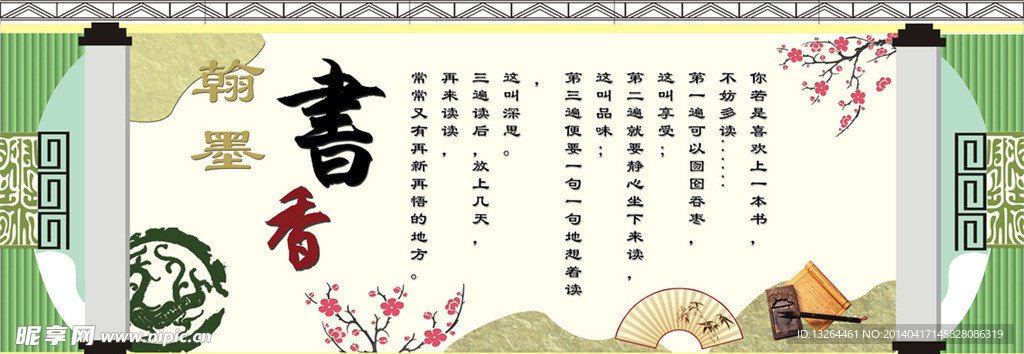 翰墨
書香
你若是喜欢上一本书，
不妨多读......
第一遍可以囫囵吞枣，
这叫享受；
第二遍就要静心坐下来读，
这叫品味；
第三遍便要一句一句地想着读
，
这叫深思。
三遍读后，放上几天，
再来读读，
常常又有再新再悟的地方。
昵享网 www.nipic.cn
ID:13264461 NO:20140417145828086319